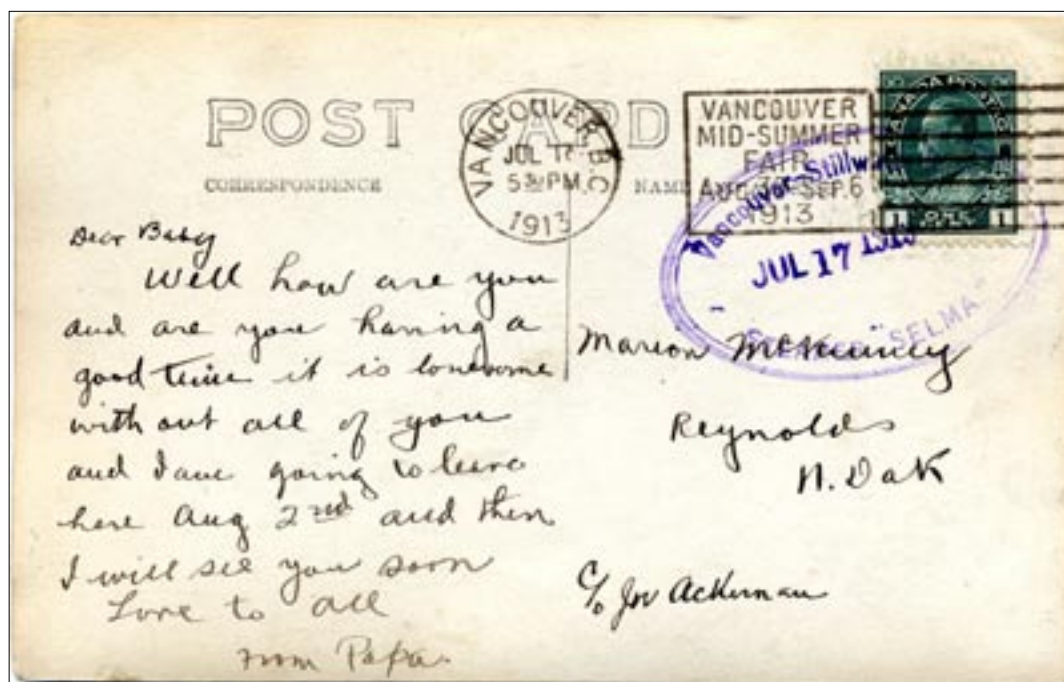 POST CARD
CORRESPONDENCE
NAME
VANCOUVER B.C.
JUL 16
5 30 PM
1913
VANCOUVER
MID-SUMMER
FAIR
AUG. 30 - SEP. 6
1913
1 1
Vancouver-Stillw
JUL 17 1913
"SELMA"
Dear Baby
Well how are you
and are you having a
good time it is lonesome
without all of you
and I am going to leave
here Aug 2nd and then
I will see you soon
Love to all
From Papa.
Marion McKinney
Reynolds
N. Dak
c/o Ackerman